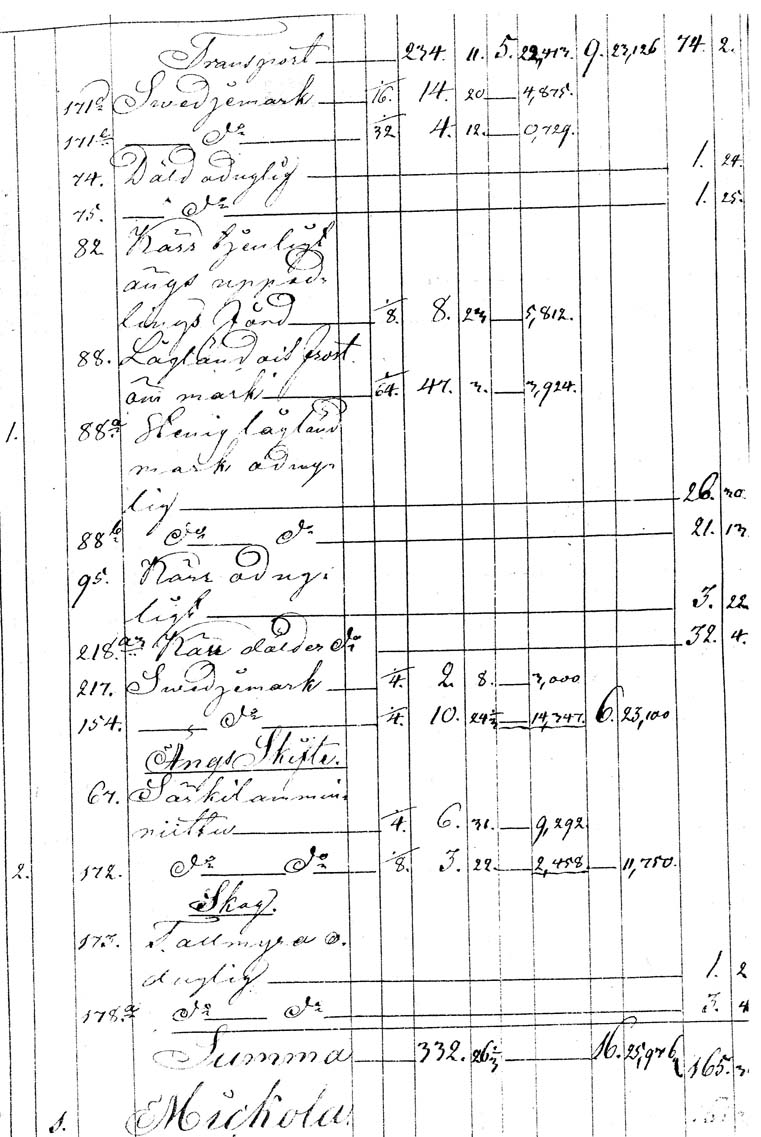 Transport 234. 11. 5. 22,413. 9. 23,126 74. 2.
171d Swedjemark 1/16. 14. 20 4,875.
171e do 1/32 4. 12. 0,729.
74. Däld oduglig 1. 24.
75. do 1. 25.
82 Kärr tjenligt
ängs uppod-
lings jord 1/8. 8. 23 5,812.
88. Lågländ och frost
öm mark 1/64. 47. 3. 3,924.
1. 88a Stenig lågländ
mark odug-
lig 26. 30.
88b do do 21. 13
95. Kärr odug-
ligt 3. 22
218. Kärr dälder do 32. 4.
217. Swedjemark 1/4. 2. 8. 3,000
154. do 1/4. 10. 24 1/3 14,347. 6. 23,100
Ängs Skifte.
67. Särkilammin-
niittu 1/4. 6. 31. 9,292.
2. 172. do do 1/8. 3. 22 2,458 11,750.
Skog.
173. Tallmyra o-
duglig 1. 2
178a do do 3. 4
Summa 332. 26 1/3 16. 25,976 165.
1. Mickola